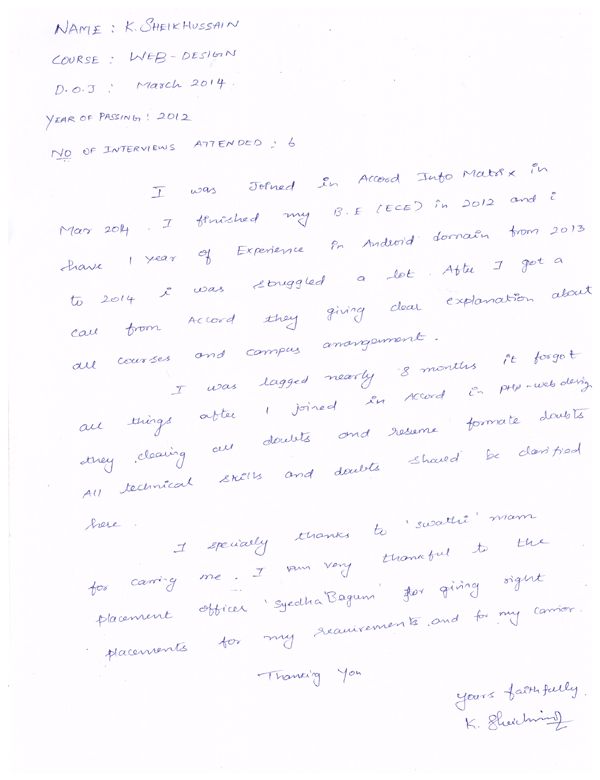 NAME : K. SHEIKHUSSAIN
COURSE : WEB-DESIGN
D.O.J : March 2014.
YEAR OF PASSING : 2012
NO OF INTERVIEWS ATTENDED : 6
I was Joined in Accord Info Matrix in
Mar 2014. I finished my B.E (ECE) in 2012 and i
have 1 year of Experience in Android domain from 2013
to 2014 i was struggled a lot. After I got a
call from Accord they giving clear explanation about
all courses and campus arrangement.
I was lagged nearly 8 months it forgot
all things after I joined in Accord in PHP-web design
they clearing all doubts and resume formate doubts
All technical skills and doubts should be clarified
here.
I specially thanks to 'swathi' mam
for carring me. I am very thankful to the
placement officer 'Syedha Bagum' for giving right
placements for my reauirements and for my carrior.
Thanking You
yours faithfully.
K.